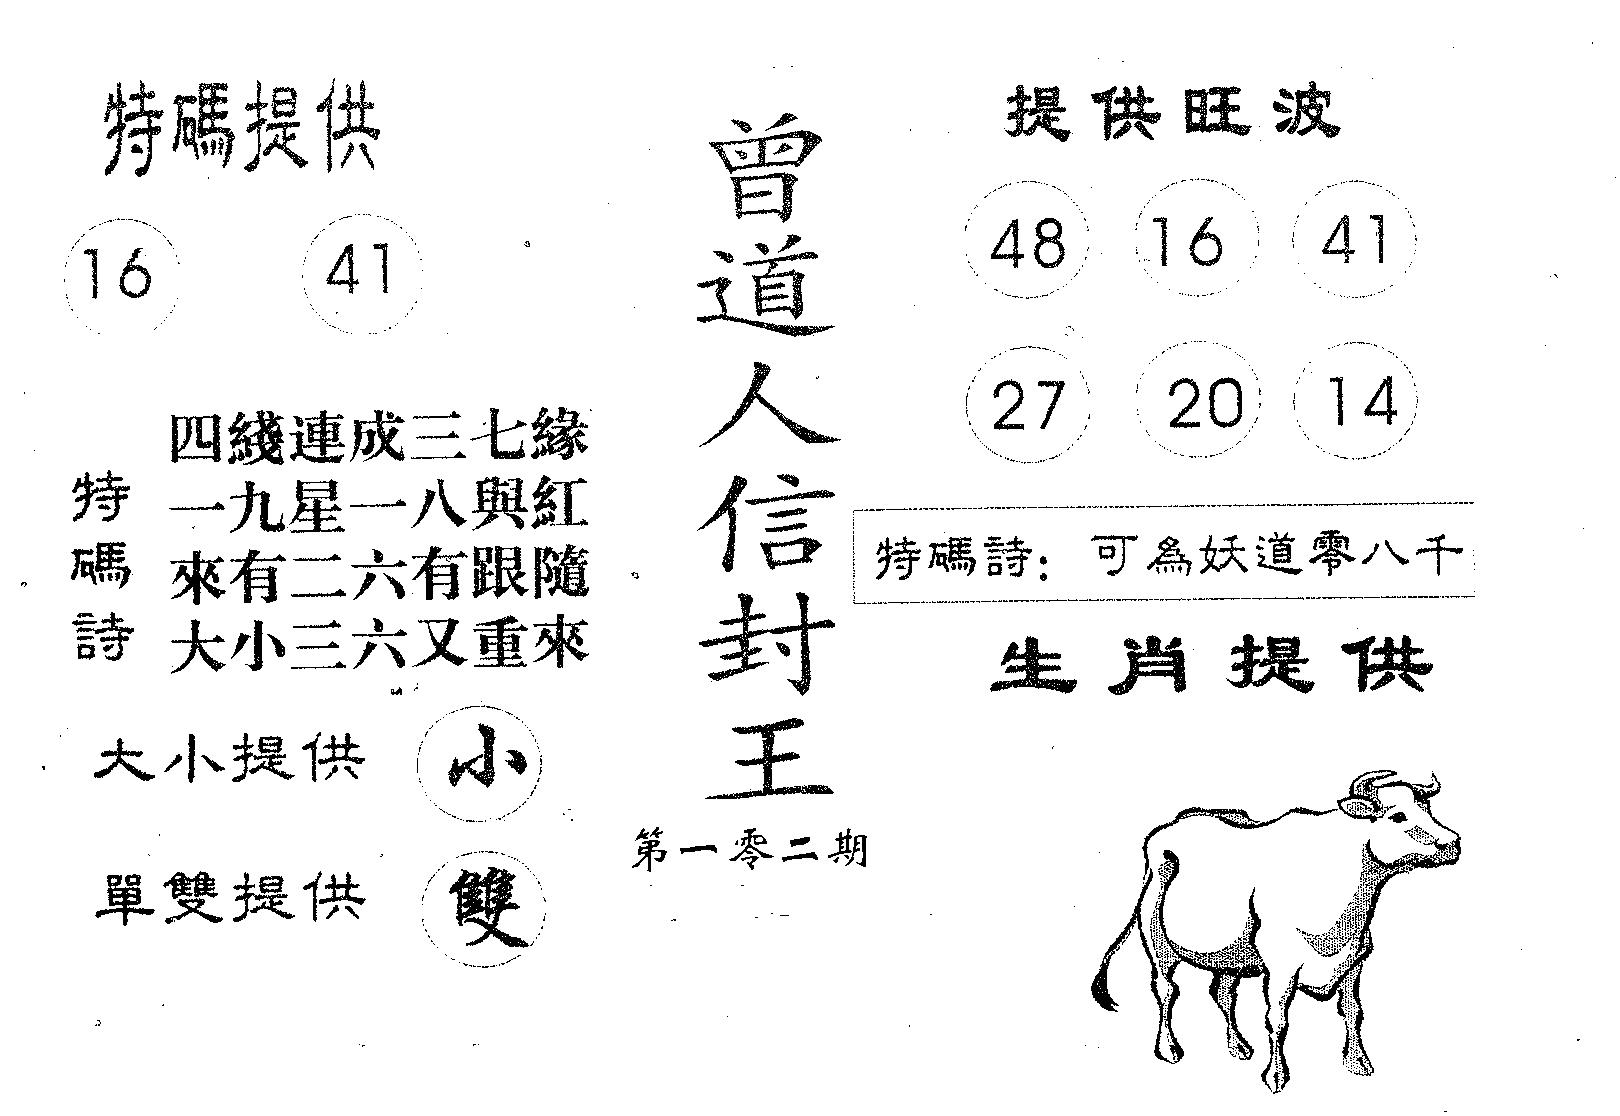 特碼提供
16 41
特碼詩
四綫連成三七緣
一九星一八與紅
來有二六有跟隨
大小三六又重來
大小提供 小
單雙提供 雙
曾道人信封王
第一零二期
提供旺波
48 16 41
27 20 14
特碼詩：可為妖道零八千
生肖提供